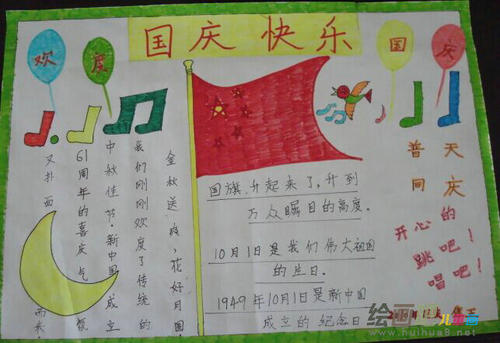 国庆快乐
欢度
国庆
金秋送爽,花好月圆
我们刚刚欢度了传统的
中秋佳节.新中国成立
61周年的喜庆气氛
又扑面而来
国旗升起来了,升到
万众瞩目的高度.
10月1日是我们伟大祖国
的生日.
1949年10月1日是新中国
成立的纪念日
普天
同庆
开心的
跳吧!
唱吧!
绘画吧
www.huihua8.net